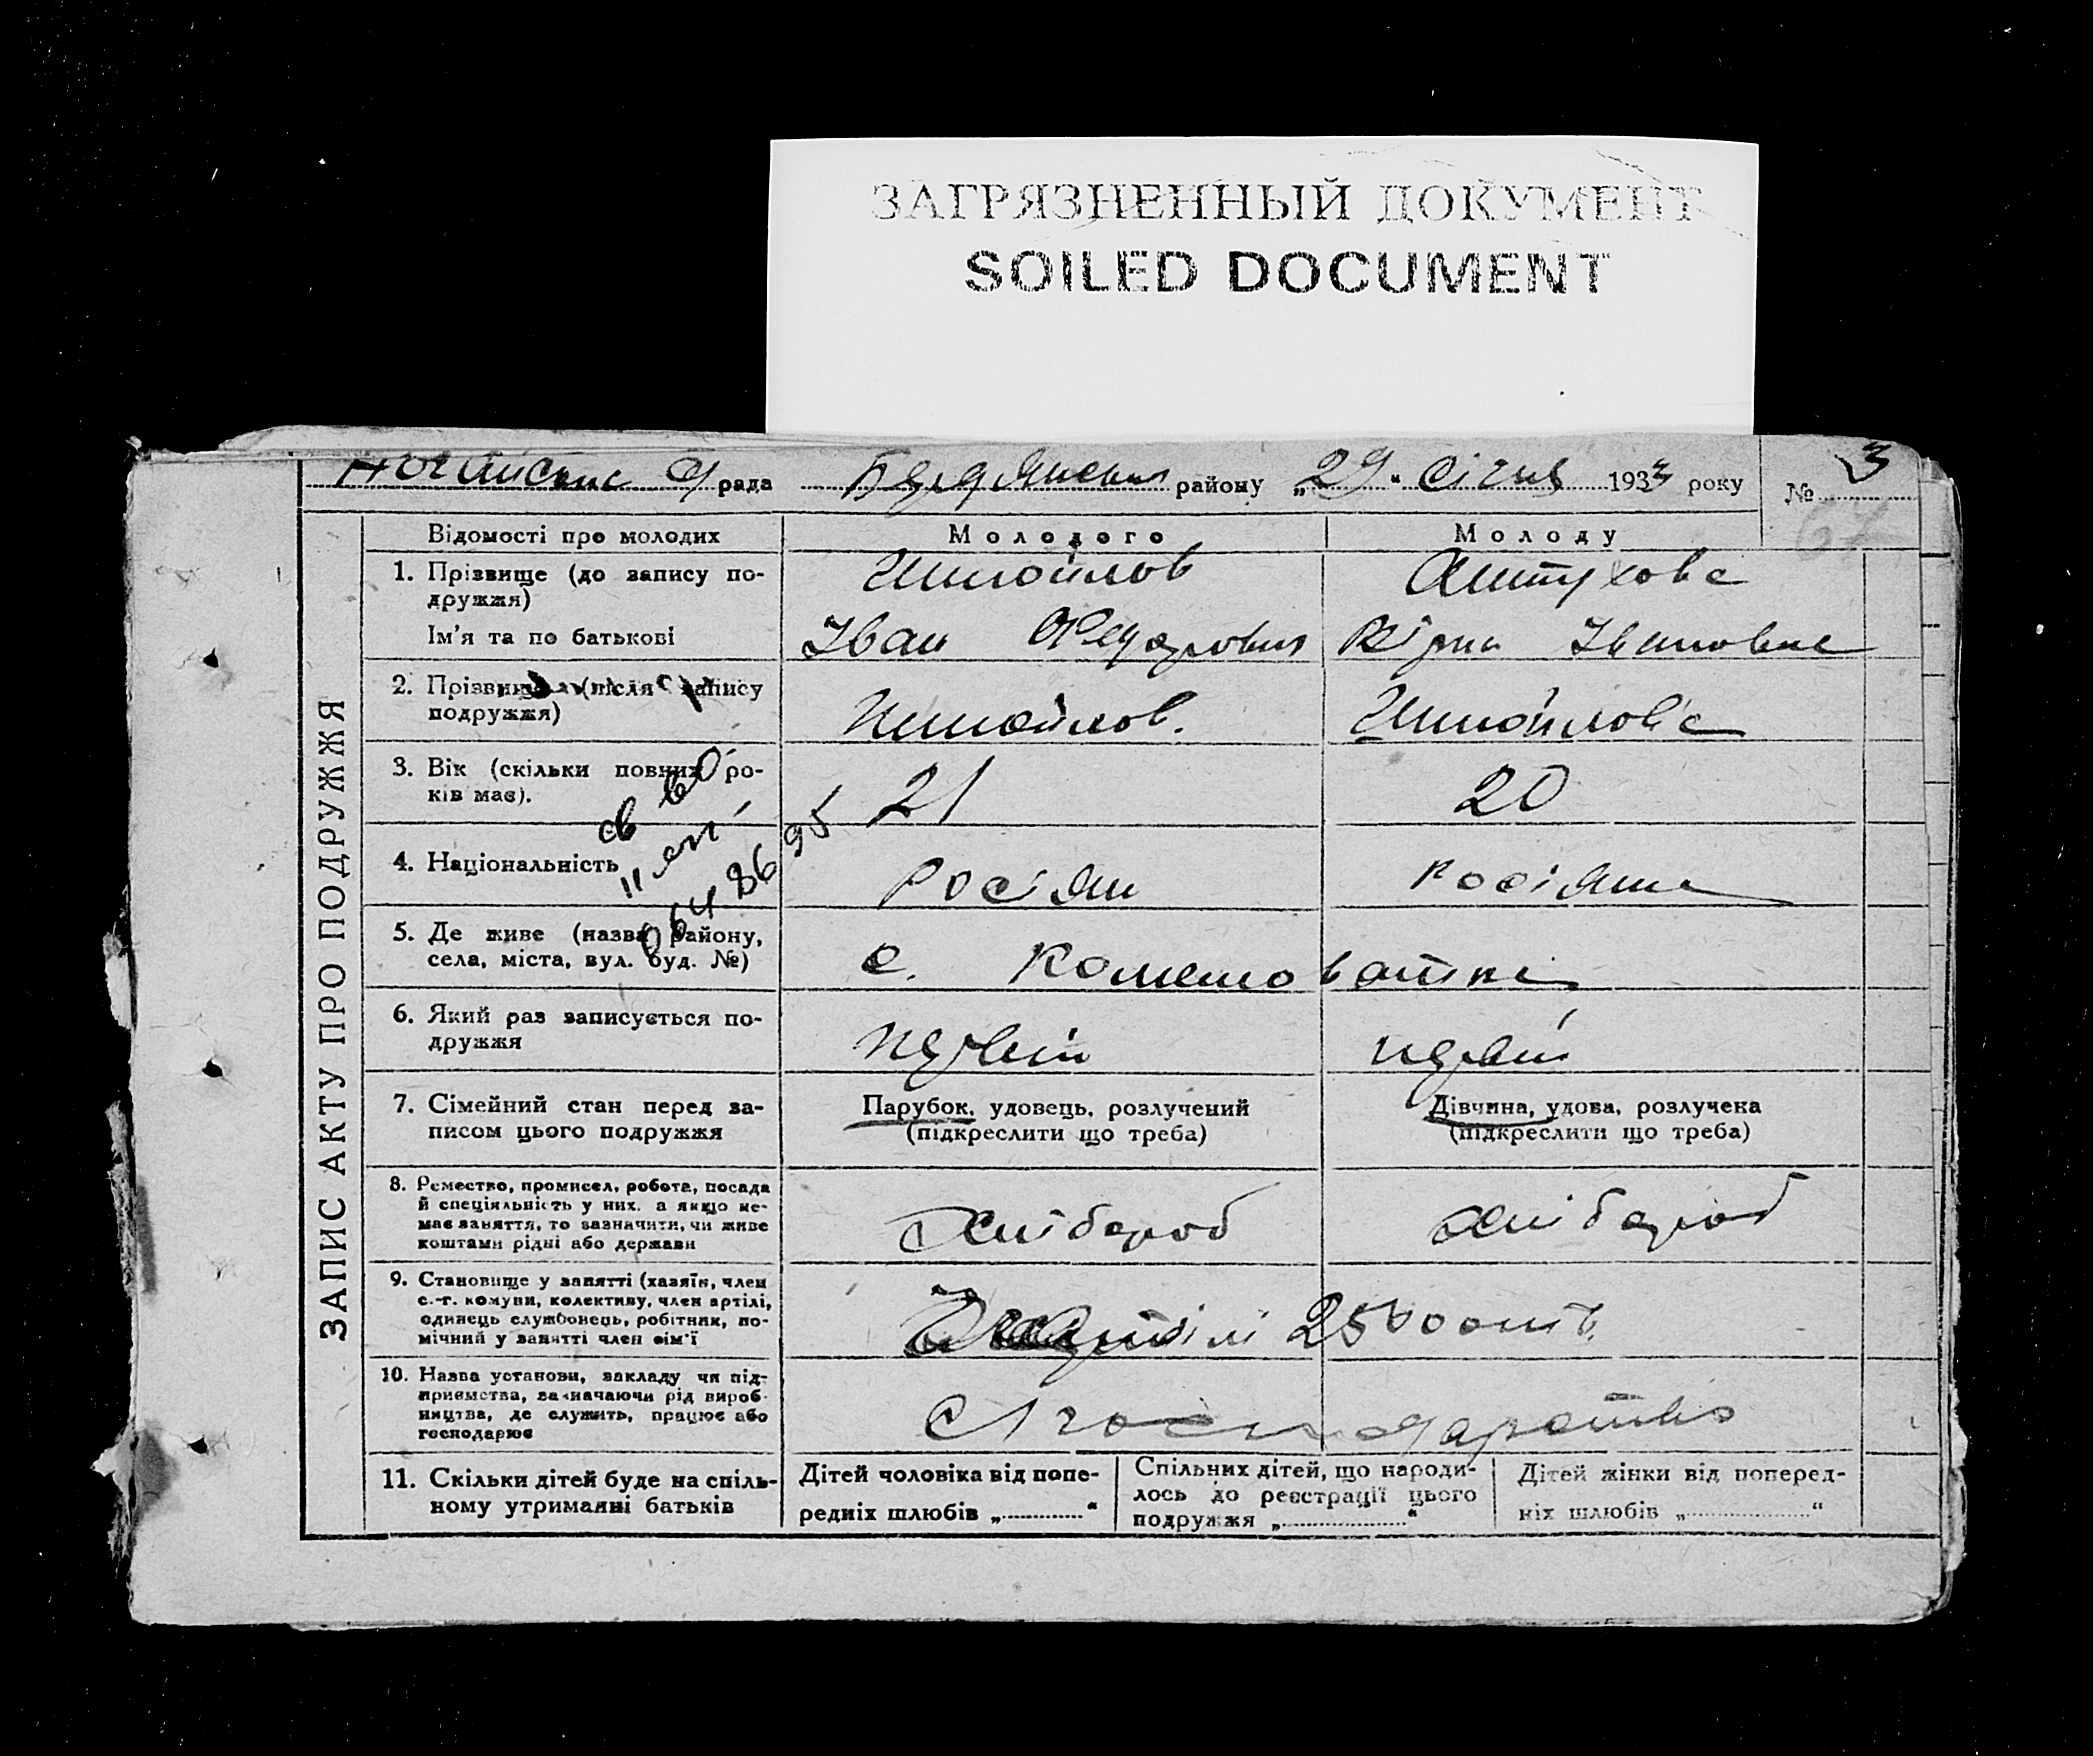 ЗАГРЯЗНЕННЫЙ ДОКУМЕНТ
SOILED DOCUMENT
рада району „29“ січня 1933 року № 3
67
ЗАПИС АКТУ ПРО ПОДРУЖЖЯ
Відомості про молодих
Молодого
Молоду
1. Прізвище (до запису по-
дружжя)
Ім'я та по батькові
Іван Федорович
Івановна
2. Прізвище (після запису
подружжя)
3. Вік (скільки повних ро-
ків має).
21
20
4. Національність
Росіян
Росіянка
5. Де живе (назва району,
села, міста, вул. буд. №)
с.
6. Який раз записується по-
дружжя
первий
первий
7. Сімейний стан перед за-
писом цього подружжя
Парубок, удовець, розлучений
(підкреслити що треба)
Дівчина, удова, розлучека
(підкреслити що треба)
8. Ремество, промисел, робота, посада
й спеціяльність у них, а якщо не-
має заняття, то зазначити, чи живе
коштами рідні або держави
хлібороб
хлібороб
9. Становище у занятті (хазяїн, член
с.-г. комуни, колективу, член артілі,
одинець службовець, робітник, по-
мічний у занятті член сім'ї
10. Назва установи, закладу чи під-
приємства, зазначаючи рід вироб-
ництва, де служить, працює або
господарює
11. Скільки дітей буде на спіль-
ному утриманні батьків
Дітей чоловіка від попе-
редніх шлюбів „ “
Спільних дітей, що народи-
лось до реєстрації цього
подружжя „ “
Дітей жінки від поперед-
ніх шлюбів „ “